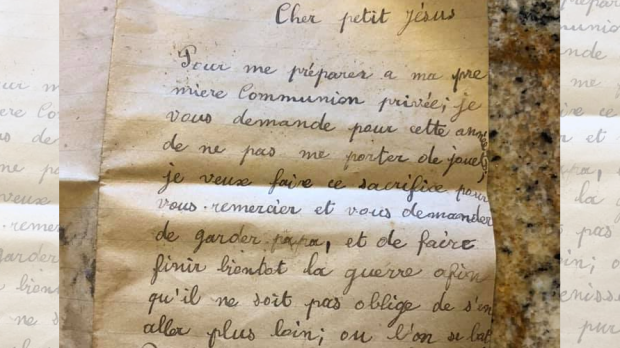 Cher petit Jésus
Pour me préparer a ma pre
mière Communion privée, je
vous demande pour cette année
de ne pas me porter de jouets,
je veux faire ce sacrifice pour
vous remercier et vous demander
de garder papa, et de faire
finir bientot la guerre afin
qu'il ne soit pas oblige de s'en
aller plus loin; ou l'on se bat